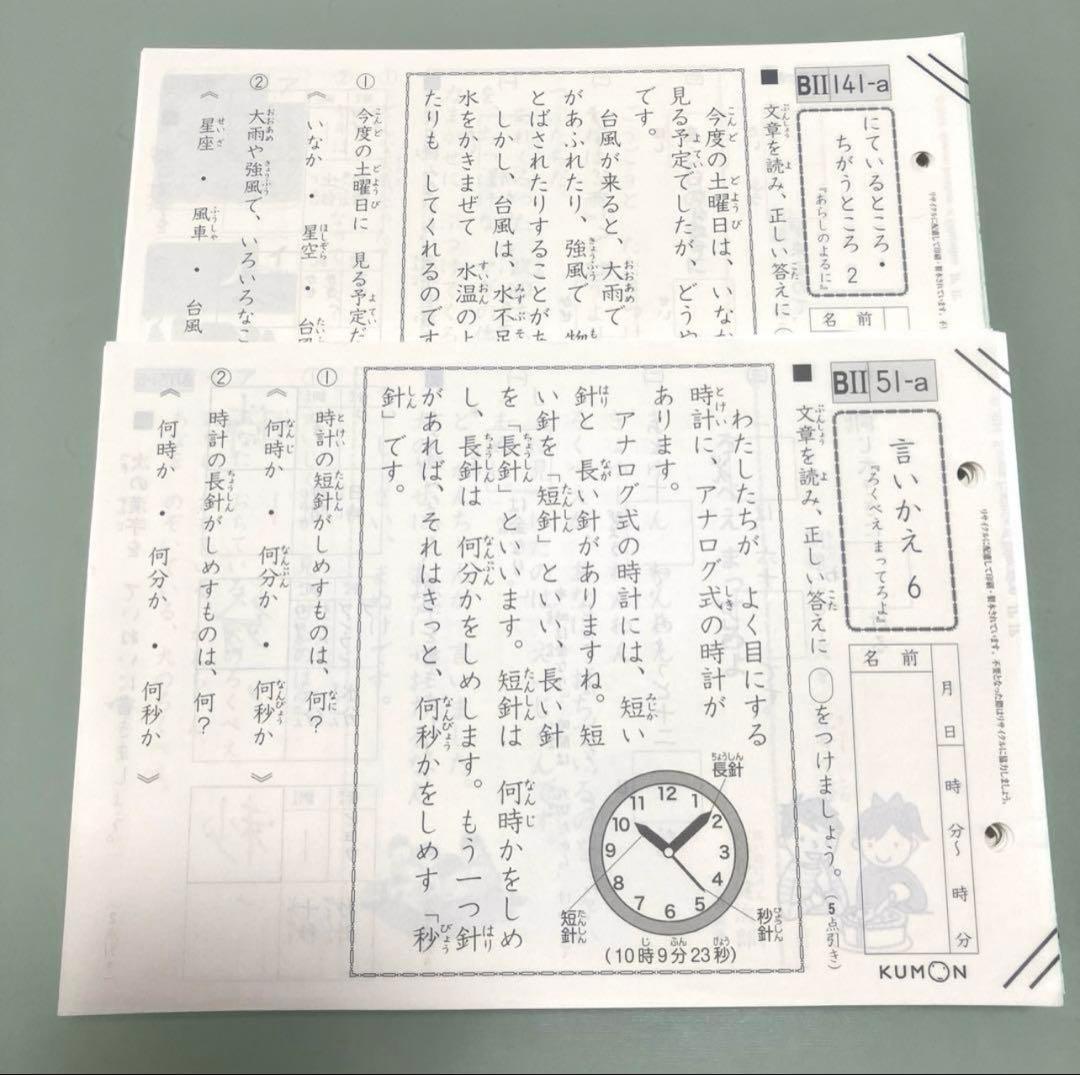 BII 141-a
にているところ・
ちがうところ 2
『あらしのよるに』
名前
■ 文章を読み、正しい答えに
今度の土曜日は、いなか
見る予定でしたが、どうや
です。
台風が来ると、大雨で
があふれたり、強風で 物
とばされたりすることがち
しかし、台風は、水不足
水をかきまぜて 水温の上
たりも してくれるのです
① 今度の土曜日に 見る予定だ
《 いなか ・ 星空 ・ 台風
② 大雨や強風で、いろいろなこ
《 星座 ・ 風車 ・ 台風
BII 51-a
言いかえ 6
『ろくべえ まってろよ』
名前
月 日
時 分〜 時 分
リサイクルに配慮して印刷・製本されています。不要となった際はリサイクルに協力しましょう。
KUMON
■ 文章を読み、正しい答えに ◯をつけましょう。(5点引き)
わたしたちが よく目にする
時計に、アナログ式の時計が
あります。
アナログ式の時計には、短い
針と 長い針がありますね。短
い針を「短針」といい、長い針
を「長針」といいます。短針は 何時かをしめ
し、長針は 何分かをしめします。もう一つ針
があれば、それはきっと、何秒かをしめす「秒
針」です。
長針
12
1
2
3
4
5
6
7
8
9
10
11
短針
秒針
(10時9分23秒)
① 時計の短針がしめすものは、何?
《 何時か ・ 何分か ・ 何秒か 》
② 時計の長針がしめすものは、何?
《 何時か ・ 何分か ・ 何秒か 》